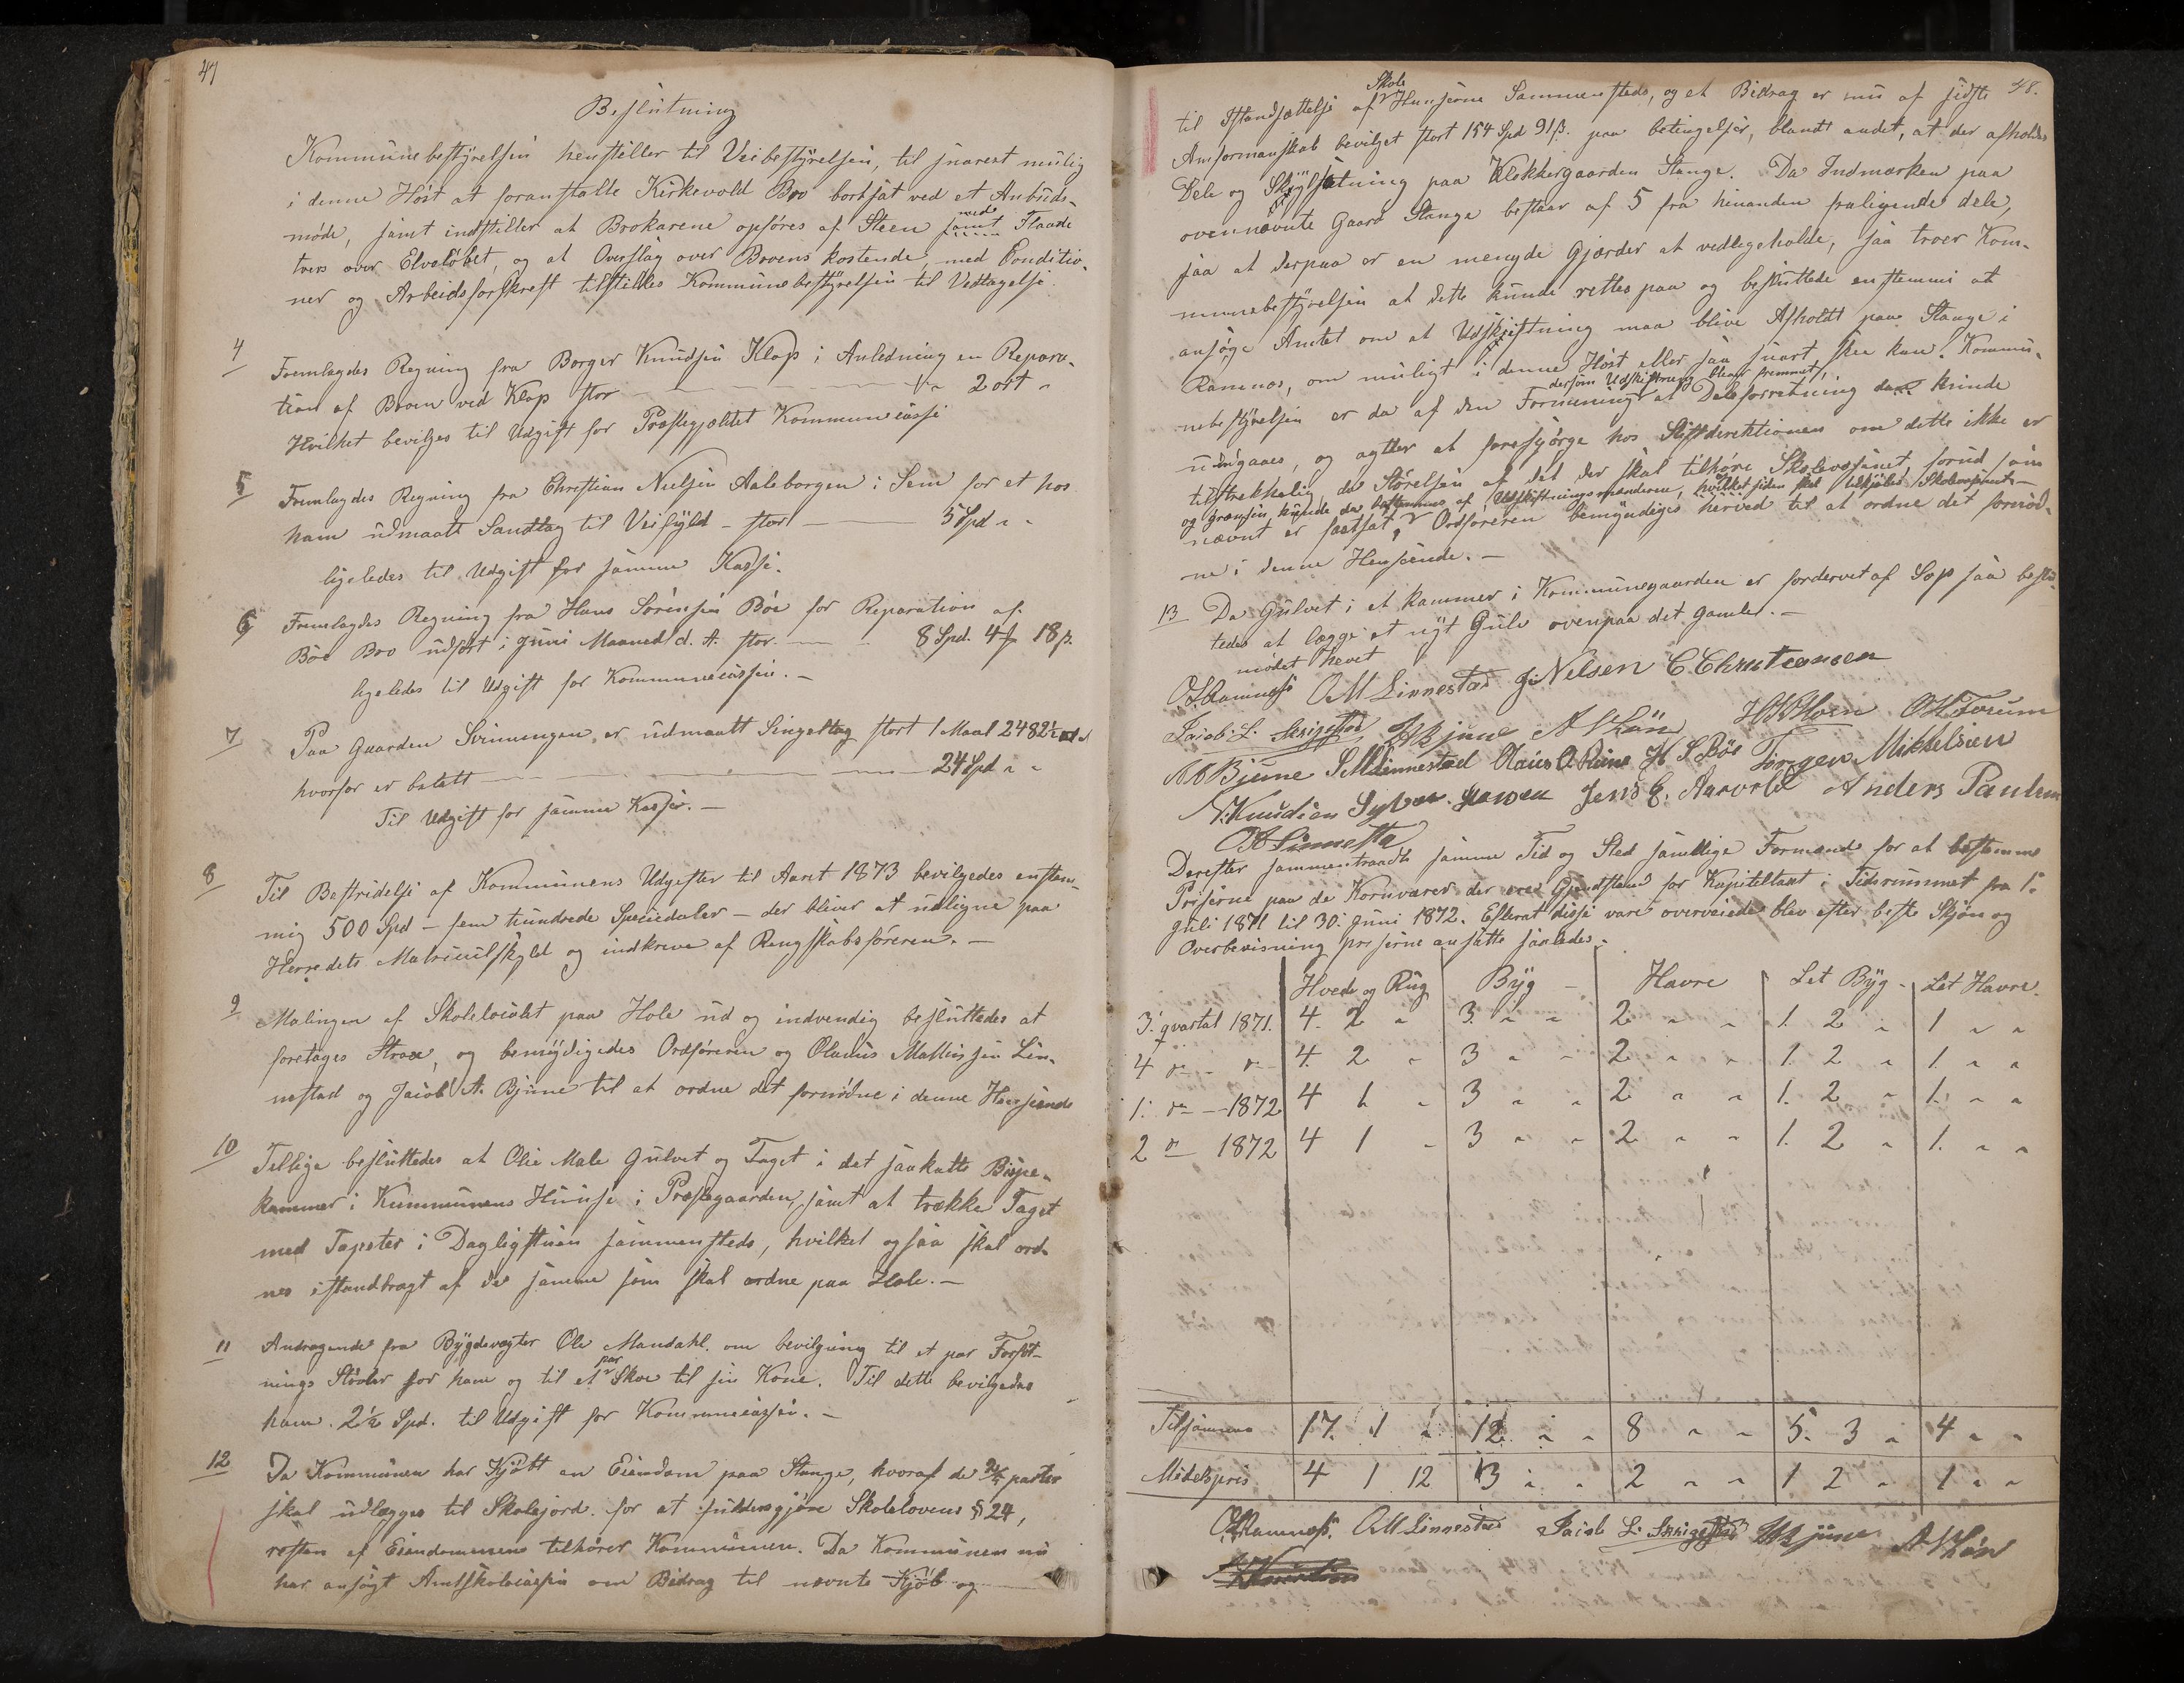 47
Beslutning
Kommunebestÿrelsen henstiller til Veibestÿrelsen, til snarest mulig
i denne Høst at foranstalte Kirkevold Bro bortsat ved et Anbuds-
møde, samt indstiller at Brokarene opføres af Steen samt med
tvers over Elveløbet, og at Overslag over Broens kostende, med Conditio-
ner og Arbeidsforskreft tilstilles Kommunebestÿrelsen til Vedtagelse.
4 Fremlagdes Regning fra Borger Knudsen Klop i Anledning en Repara-
tion af Broen ved Klop stor 2 ort "
Hvilket bevilges til Udgift for Præstegjeldet Kommunecasse
5 Fremlagdes Regning fra Christian Nielsen Aaleborgen i Sem for et hos
ham udmaalt Sandtag til Veifÿld - stor 5 Spd " "
ligeledes til Udgift for samme Kasse.
6 Fremlagdes Regning fra Hans Sørensen Bøe for Reparation af
Böe Bro udført i Juni Maaned d. A. stor 8 Spd. 4 18 ß.
ligeledes til Udgift for Kommunecassen. -
7 Paa Gaarden Svinningen er udmaalt Singeltag stort 1 Maal 2482½
hvorfor er betalt 24 Spd " "
Til Udgift for samme Kasse. -
8 Til Bestridelse af Kommunens Udgifter til Aaret 1873 bevilgedes enstem-
mig 500 Spd - fem hundrede Speciedaler - der bliver at udligne paa
Herredets Matriculskyld og indkreve af Rengskabsføreren. -
9 Malingen af Skolelocalet paa Hole ud og indvendig besluttedes at
foretages Strax, og bemÿdigedes Ordføreren og Olavus Mathissen Lin-
nestad og Jacob A. Bjune til at ordne det fornødne i denne Henseende
10 Tillige besluttedes at Olie Male Gulvet og Taget i det saakalte Bispe-
kammer i Kummunens Huuse i Præstegaarden, samt at trække Taget
med Tapeter i Dagligstuen sammensteds, hvilket ogsaa skal ord-
nes istandbragt af de samme som skal ordne paa Hole. -
11 Andragende fra Bÿgdevægter Ole Mandahl. om bevilgning til et par Forføt-
nings Støvler for ham og til et par Skoe til sin Kone. Til dette bevilgedes
ham. 2½ Spd. til Udgift for Kommunecassen. -
12 Da Kommunen har Kjøbt en Eiendom paa Stange, hvoraf de parter
skal udlægges til Skolejord. for at fuldengjøre Skolelovens § 24,
resten af Eiendommene tilhører Kommunen. Da Kommunen nu
har ansøgt Amtskolecassen om Bidrag til nævnte Kjøb og
48.
til Istandsættelse af Skole Huusene Sammensteds, og et Bidrag er nu af sidste
Amsformanskab bevilget stort 154 Spd 91 ß. paa betingelser, blandt andet, at der afholdes
Dele og Skÿlsætning paa Klokkergaarden Stange. Da Indmarken paa
ovennævnte Gaard Stange bestaar af 5 fra hinanden fraligende dele,
saa at derpaa er en mengde Gjærder at vedligeholde, saa troer Kom-
munebestÿrelsen at dette kunde rettes paa og besluttede enstemmi at
ansøge Amtet om at Udskiftning maa blive Afholdt paa Stange i
Ramnæs, om muligt i denne Høst eller saa snart skee kan! Kommu-
nebestÿrelsen er da af den Formening dersom Udskiftning bliver fremmet, at Deleforretning da kunde
undgaaes, og agter at forespørge hos Stiftdirektionen om dette ikke er
tilstrekkelig, da Størelsen af det der skal tilhøre Skolevæsenet forud som
og Grænsen kunde da bestemmes af Udskiftningsmændene, hvilket siden skal Skolevæsenet -
nævnt er fastsat, Ordføreren bemyndiges herved til at ordne det fornød-
ne i denne Henseende. -
13 Da Gulvet i et kammer i Kommunegaarden er fordervet af Sop saa beslu-
tedes at lægge et nÿt Gulv ovenpaa det gamle. -
mødet hevet
O. Ramnæss O M Linnestad J. Nilsen C. Christiansen
Jacob L. Skrigestad A Bjune A. Hhön H. Horn O H Forum
A A Bjune S. M. Linnestad Claus O. Ruue H. S. Bøe Jørgen Mikkelsen
N. Knudsen Sÿver Hansen Jens E. Aarvold Anders Paulsen
O A Linnestad
Derefter sammentraadte samme Tid og Sted samtlige Formænd for at bestemme
Priserne paa de Kornvarer der ere Gjenstand for Kapiteltaxt i Tidsrummet fra 1.
Juli 1871 til 30. Juni 1872. Efterat disse vare overveiede blev efter beste Skjøn og
Overbevisning priserne ansatte saaledes.
Hvede og Rug Bÿg - Havre Let Bÿg - Let Havre.
3. qvartal 1871. 4. 2 " 3. " " 2 " " 1. 2 " 1 " "
4 do - do 4. 2 " 3 " " 2 " " 1. 2 " 1. " "
1. do - 1872 4 1. " 3 " " 2 " " 1. 2 " 1. " "
2 do 1872 4 1 " 3 " " 2 " " 1. 2 " 1. " "
Tilsammens 17. 1 " 12 " " 8 " " 5. 3 " 4 " "
Midelspris 4 1 12 3 " " 2 " " 1 2 " 1 " "
O. Ramnæss. O M Linnestad Jacob L. Skrigestad A Bjune A. Hhön